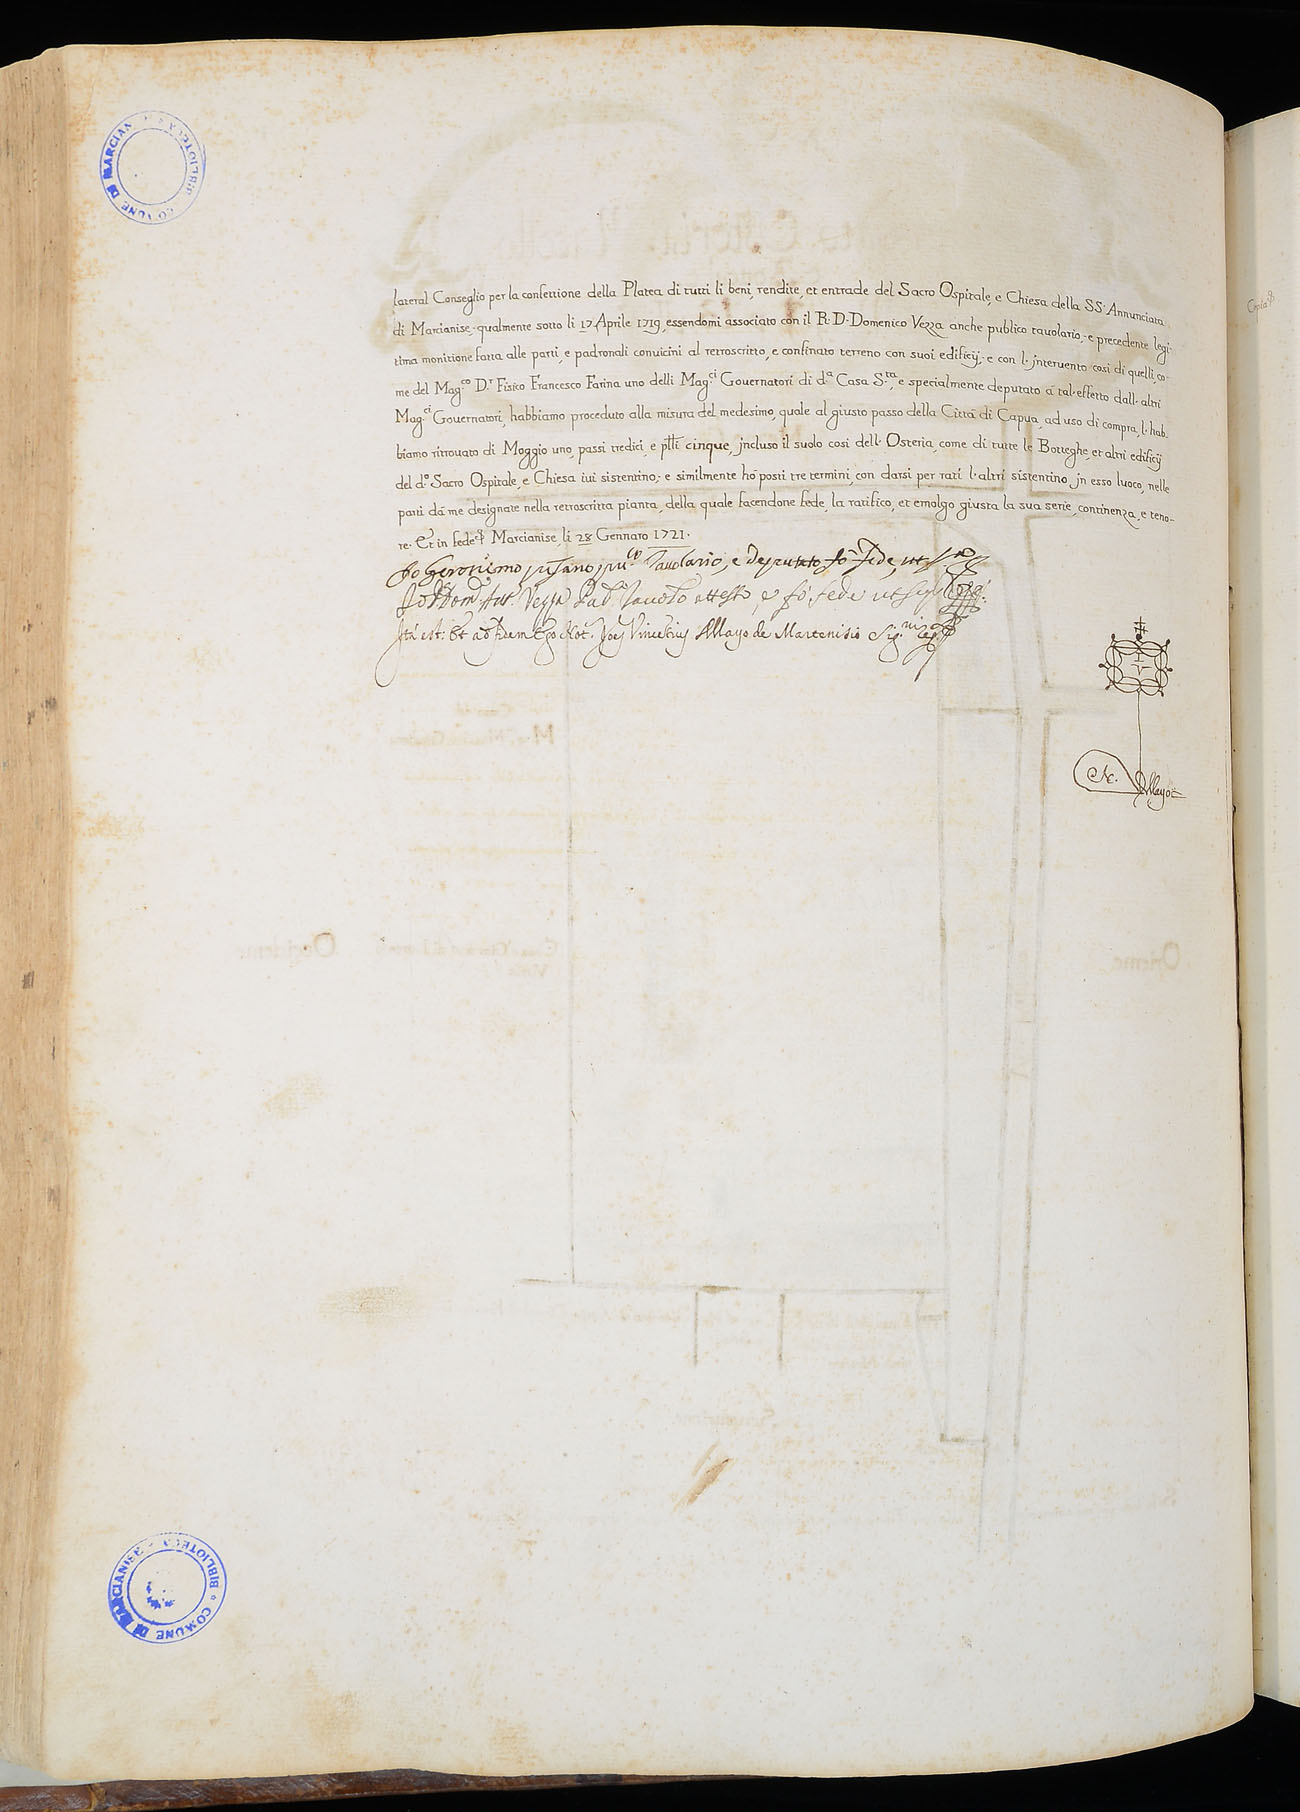 lateral Conseglio per la confettione della Platea di tutti li beni, rendite, et entrade del Sacro Ospitale, e Chiesa della SS. Annunciata
di Marcianise, qualmente sotto li 17. Aprile 1719, essendomi associato con il R. D. Domenico Vezza anche publico tavolario, e precedente legi-
tima monitione fatta alle parti, e padronali convicini al retroscritto, e confinato terreno con suoi edificij, e con l. jntervento così di quelli, co-
me del Mag.co D.r Fisico Francesco Farina uno delli Mag.ci Governatori di d.a Casa S.ta, e specialmente deputato à tal effetto dall. altri
Mag.ci Governatori, habbiamo proceduto alla misura del medesimo, quale al giusto passo della Città di Capua, ad uso di compra, l. hab-
biamo ritrovato di Moggio uno, passi tredici, e ptti cinque, jncluso il suolo così dell. Osteria, come di tutte le Botteghe, et altri edificij
del d.o Sacro Ospitale, e Chiesa ivi sistentino; e similmente hò posti tre termini, con darsi per rati l. altri sistentino jn esso luoco, nelle
parti dà me designate nella retroscritta pianta, della quale facendone fede, la ratifico, et emolgo giusta la sua serie, continenza, e teno-
re. Et in fede Marcianise, li 28 Gennaro 1721.
Io Geronimo pu.co Tavolario, e Deputato fò fede, ut s.a
Io D. Dom. Ant. Vezza Tavol.o attesto, e fò fede
Ita est. Et ad fidem Ego Not. Vincentius Mayo de Martenisio Sig.vi
N. Mayo
COMUNE DI MARCIANISE BIBLIOTECA
Occidente
Oriente
COMUNE DI MARCIANISE * BIBLIOTECA *